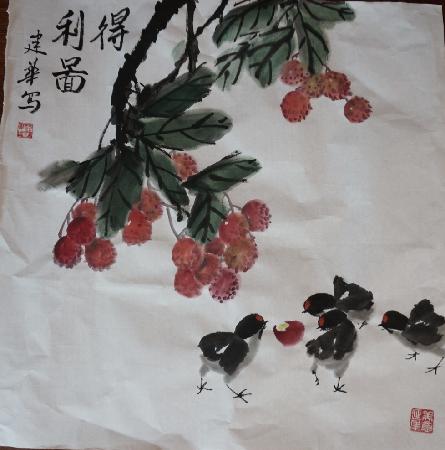 得
利圖
建華写